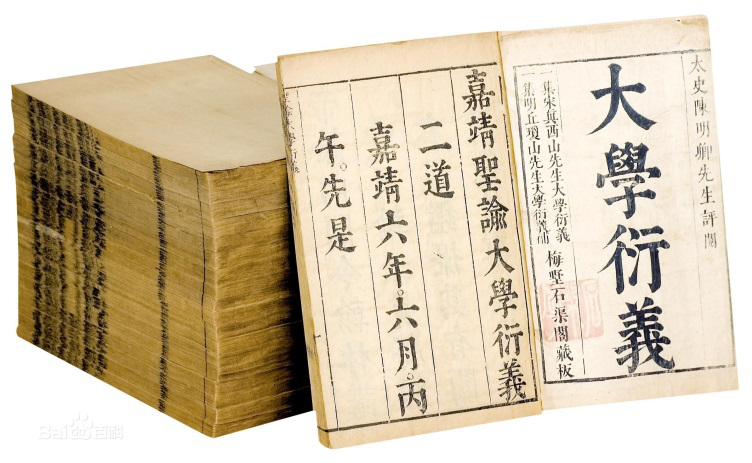 太史陳明卿先生評閱
大學衍義
一集宋真西山先生大學衍義
一集明丘瓊山先生大學衍義補
梅墅石渠閣藏板
嘉靖聖諭大學衍義
二道
嘉靖六年。六月。丙
午。先是
Baidu百科